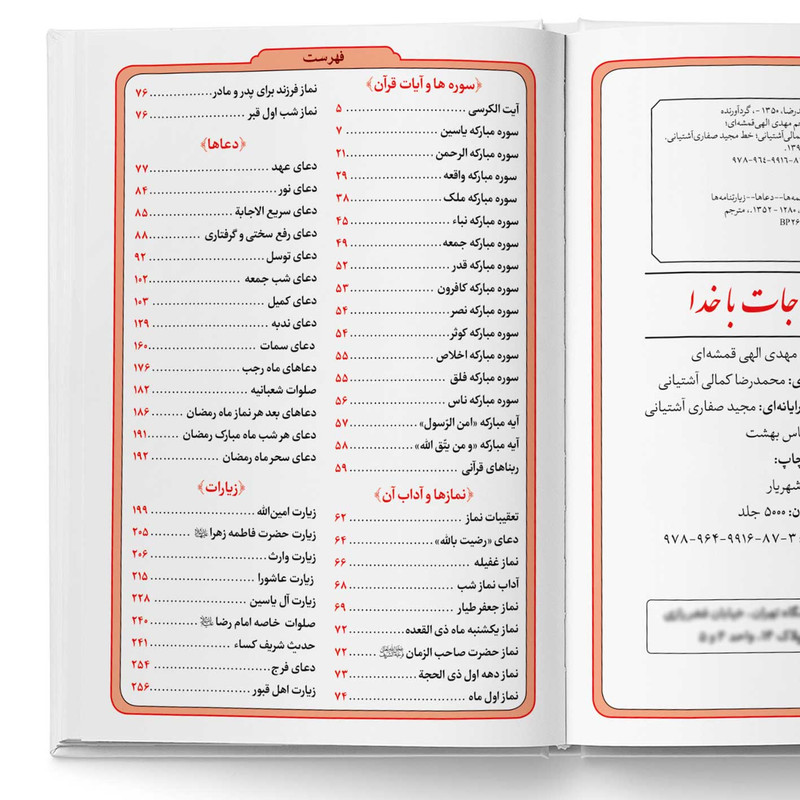 فهرست
﴿سوره ها و آیات قرآن﴾
آیت الکرسی ........ ۵
سوره مبارکه یاسین ........ ۷
سوره مبارکه الرحمن ........ ۲۱
سوره مبارکه واقعه ........ ۲۹
سوره مبارکه ملک ........ ۳۸
سوره مبارکه نباء ........ ۴۵
سوره مبارکه جمعه ........ ۴۹
سوره مبارکه قدر ........ ۵۲
سوره مبارکه کافرون ........ ۵۳
سوره مبارکه نصر ........ ۵۴
سوره مبارکه کوثر ........ ۵۴
سوره مبارکه اخلاص ........ ۵۵
سوره مبارکه فلق ........ ۵۵
سوره مبارکه ناس ........ ۵۶
آیه مبارکه «امن الرّسول» ........ ۵۷
آیه مبارکه «و من یتّق الله» ........ ۵۸
ربناهای قرآنی ........ ۵۹
﴿نمازها و آداب آن﴾
تعقیبات نماز ........ ۶۲
دعای «رضیت بالله» ........ ۶۴
نماز غفیله ........ ۶۶
آداب نماز شب ........ ۶۸
نماز جعفر طیار ........ ۶۹
نماز یکشنبه ماه ذی القعده ........ ۷۲
نماز حضرت صاحب الزمان ........ ۷۲
نماز دهه اول ذی الحجة ........ ۷۳
نماز اول ماه ........ ۷۴
نماز فرزند برای پدر و مادر ........ ۷۶
نماز شب اول قبر ........ ۷۶
﴿دعاها﴾
دعای عهد ........ ۷۷
دعای نور ........ ۸۴
دعای سریع الاجابة ........ ۸۵
دعای رفع سختی و گرفتاری ........ ۸۸
دعای توسل ........ ۹۲
دعای شب جمعه ........ ۱۰۲
دعای کمیل ........ ۱۰۳
دعای ندبه ........ ۱۲۹
دعای سمات ........ ۱۶۰
دعاهای ماه رجب ........ ۱۷۶
صلوات شعبانیه ........ ۱۸۲
دعاهای بعد هر نماز ماه رمضان ........ ۱۸۶
دعای هر شب ماه مبارک رمضان ........ ۱۹۱
دعای سحر ماه رمضان ........ ۱۹۲
﴿زیارات﴾
زیارت امین‌الله ........ ۱۹۹
زیارت حضرت فاطمه زهرا ........ ۲۰۵
زیارت وارث ........ ۲۰۶
زیارت عاشورا ........ ۲۱۵
زیارت آل یاسین ........ ۲۲۸
صلوات خاصه امام رضا ........ ۲۴۰
حدیث شریف کساء ........ ۲۴۱
دعای فرج ........ ۲۵۴
زیارت اهل قبور ........ ۲۵۶
۱۳۵۰ -، گردآورنده
مهدی الهی قمشه‌ای؛
آشتیانی؛ خط مجید صفاری‌آشتیانی.
دعاها--زیارتنامه‌ها
۱۲۸۰ - ۱۳۵۲.، مترجم
با خدا
مهدی الهی قمشه‌ای
محمدرضا کمالی آشتیانی
مجید صفاری آشتیانی
بهشت
چاپ:
۵۰۰۰ جلد
۹۷۸-۹۶۴-۹۹۱۶-۸۷-۳